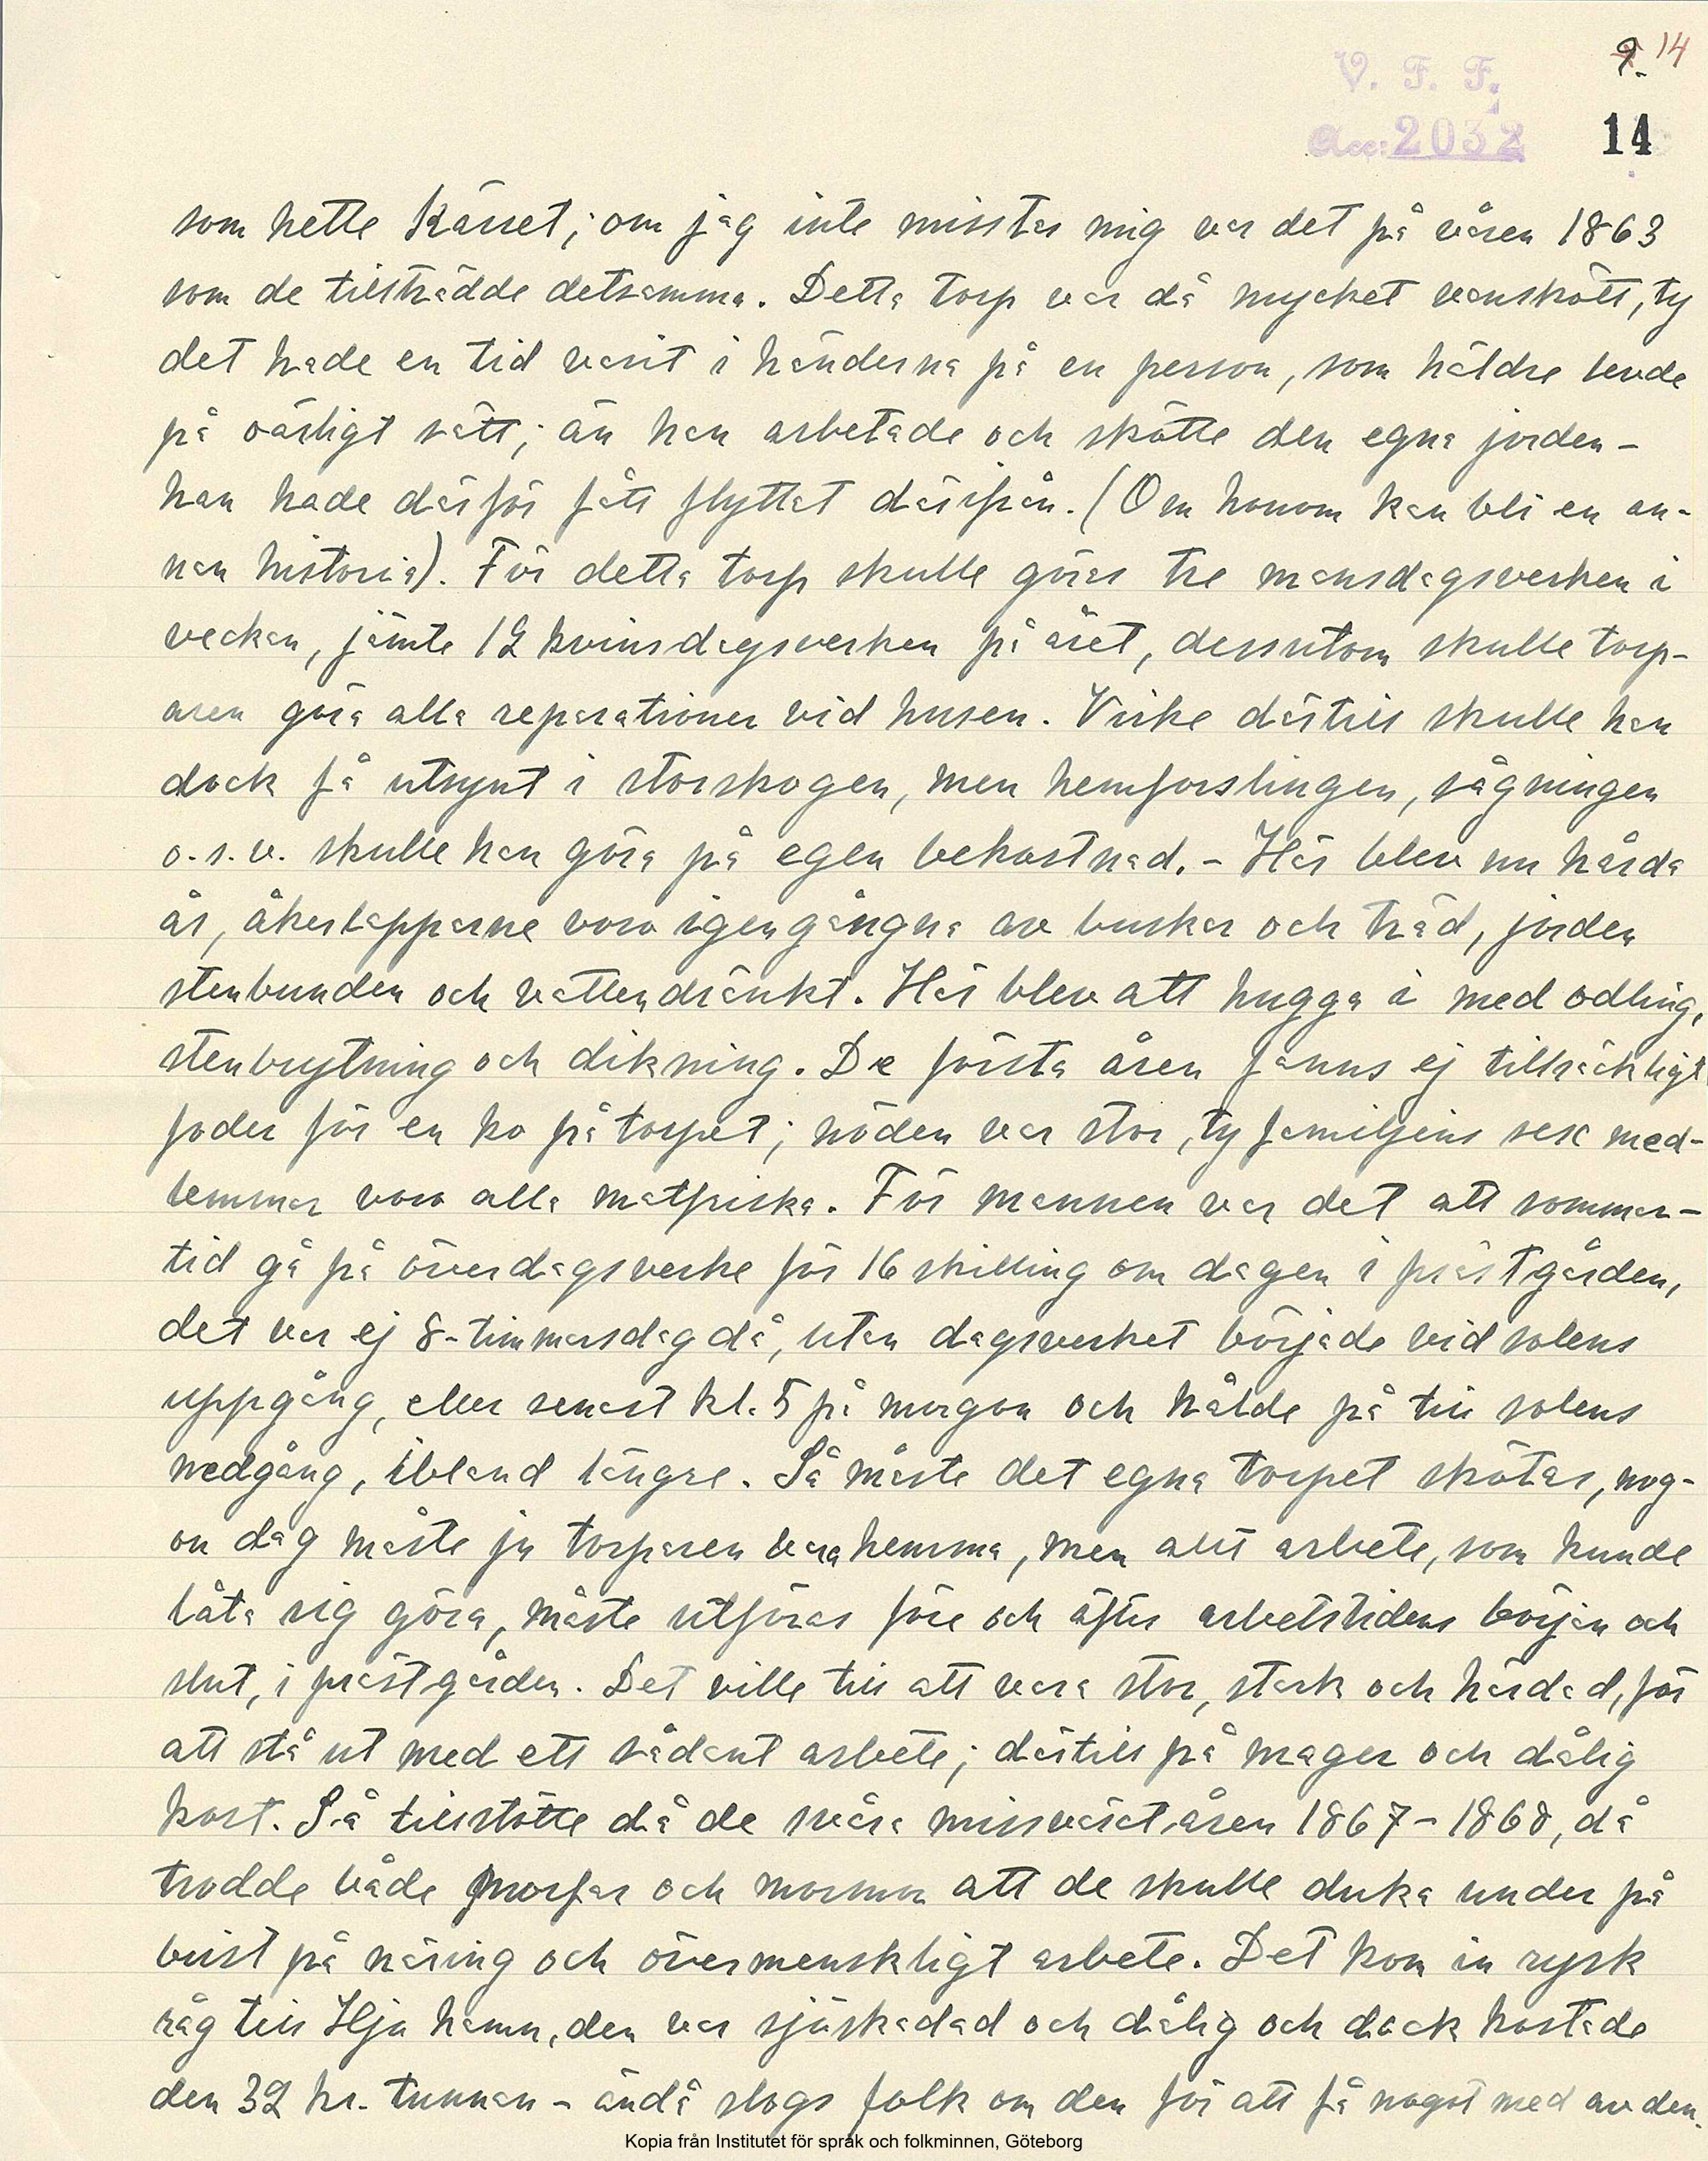 9. 14
V. F. F.
Acc: 2032 14
som hette Kärret; om jag inte misstar mig var det på våren 1863
som de tillträdde detsamma. Detta torp var då mycket vanskött, ty
det hade en tid varit i händerna på en person, som häldre levde
på oärligt sätt; än han arbetade och skötte den egna jorden –
han hade därför fått flyttat därifrån. (Om honom kan bli en an-
nan historia). För detta torp skulle göras tre mansdagsverken i
veckan, jämte 12 kvinsdagsverken på året, dessutom skulle torp-
aren göra alla reparationer vid husen. Virke därtill skulle han
dock få utsynt i storskogen, men hemforslingen, sågningen
o.s.v. skulle han göra på egen bekostnad. – Här blev nu hårda
år, åkerlapparne voro igengångna av buskar och träd, jorden
stenbunden och vattendränkt. Här blev att hugga i med odling,
stenbrytning och dikning. De första åren fanns ej tillräckligt
foder för en ko på torpet; nöden var stor, ty familjens sex med-
lemmar voro alla matfriska. För mannen var det att sommar-
tid gå på överdagsverke för 16 skilling om dagen i prästgården,
det var ej 8-timmarsdag då, utan dagsverket började vid solens
uppgång, eller senast kl. 5 på morgon och hålde på till solens
nedgång, ibland längre. Så måste det egna torpet skötas, nog-
on dag måste ju torparen vara hemma, men allt arbete, som kunde
låta sig göra, måste utföras före och äfter arbetstidens början och
slut, i prästgården. Det ville till att vara stor, stark och härdad, för
att stå ut med ett sådant arbete; därtill på mager och dålig
kost. Så tillstötte då de svåra missväxtåren 1867–1868, då
trodde både morfar och mormor att de skulle duka under på
brist på näring och övermenskligt arbete. Det kom in rysk
råg till Hjo hamn, den var sjöskadad och dålig och dock kostade
den 32 kr. tunnan – ändå slogs folk om den för att få något med av den.
Kopia från Institutet för språk och folkminnen, Göteborg